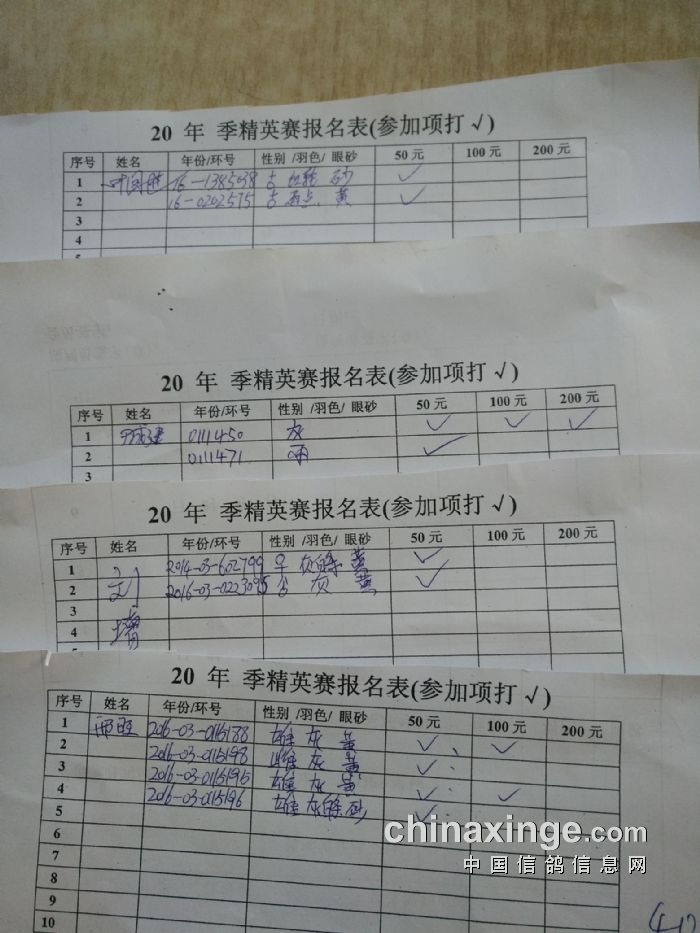 20 年 季精英赛报名表(参加项打 √)
序号 姓名 年份/环号 性别 /羽色/ 眼砂 50 元 100 元 200 元
1 16-1385038 砂 √
2 16-0202575 黄 √
3
4
20 年 季精英赛报名表(参加项打 √)
序号 姓名 年份/环号 性别 /羽色/ 眼砂 50 元 100 元 200 元
1 0111450 灰 √ √ √
2 0111471 雨 √
3
20 年 季精英赛报名表(参加项打 √)
序号 姓名 年份/环号 性别 /羽色/ 眼砂 50 元 100 元 200 元
1 刘 2014-03-602799 黄 √
2 2016-03-0223095 灰 黄 √
3
4
20 年 季精英赛报名表(参加项打 √)
序号 姓名 年份/环号 性别 /羽色/ 眼砂 50 元 100 元 200 元
1 2016-03-0115188 雄 灰 黄 √ √
2 2016-03-0115198 雌 灰 黄 √
3 2016-03-0115195 雄 灰 黄 √ √
4 2016-03-0115196 雄 灰 砂 √
5
6
7
8
9
10
chinaxinge.com
中国信鸽信息网